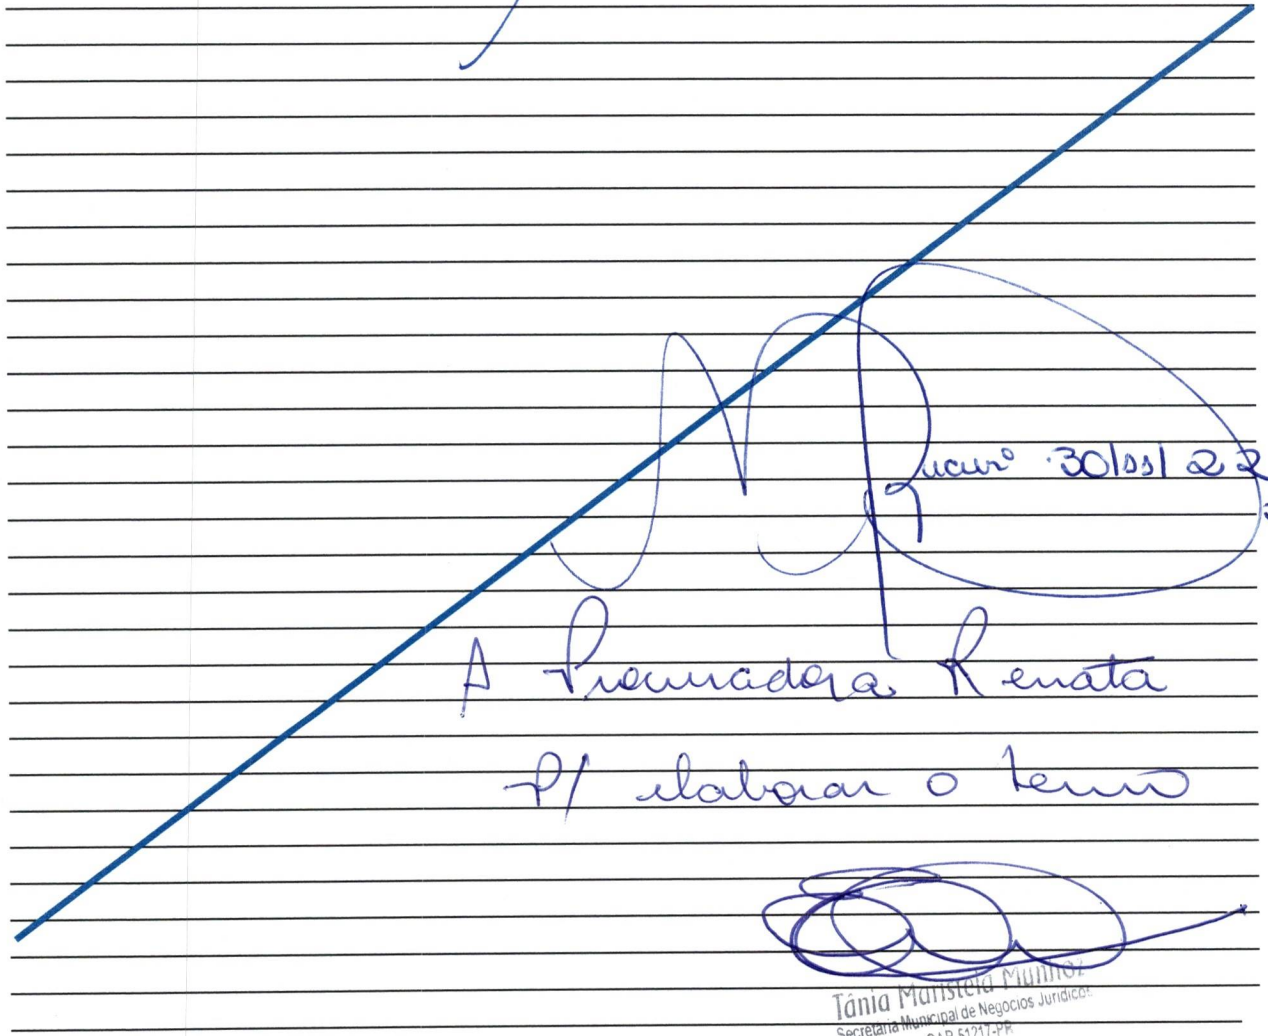 30/11/22
A Procuradora Renata
P/ elaborar o termo
Tânia Maristela Munhoz
Secretária Municipal de Negócios Jurídicos
OAB 51217-PR